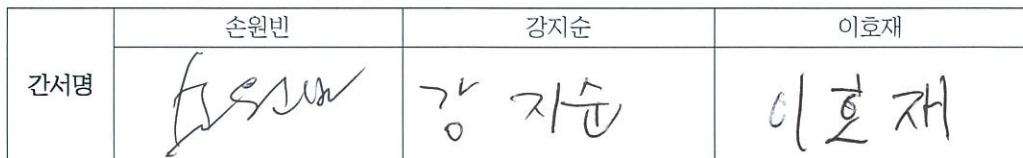 손원빈 강지순 이호재
간서명 강 지순 이호재